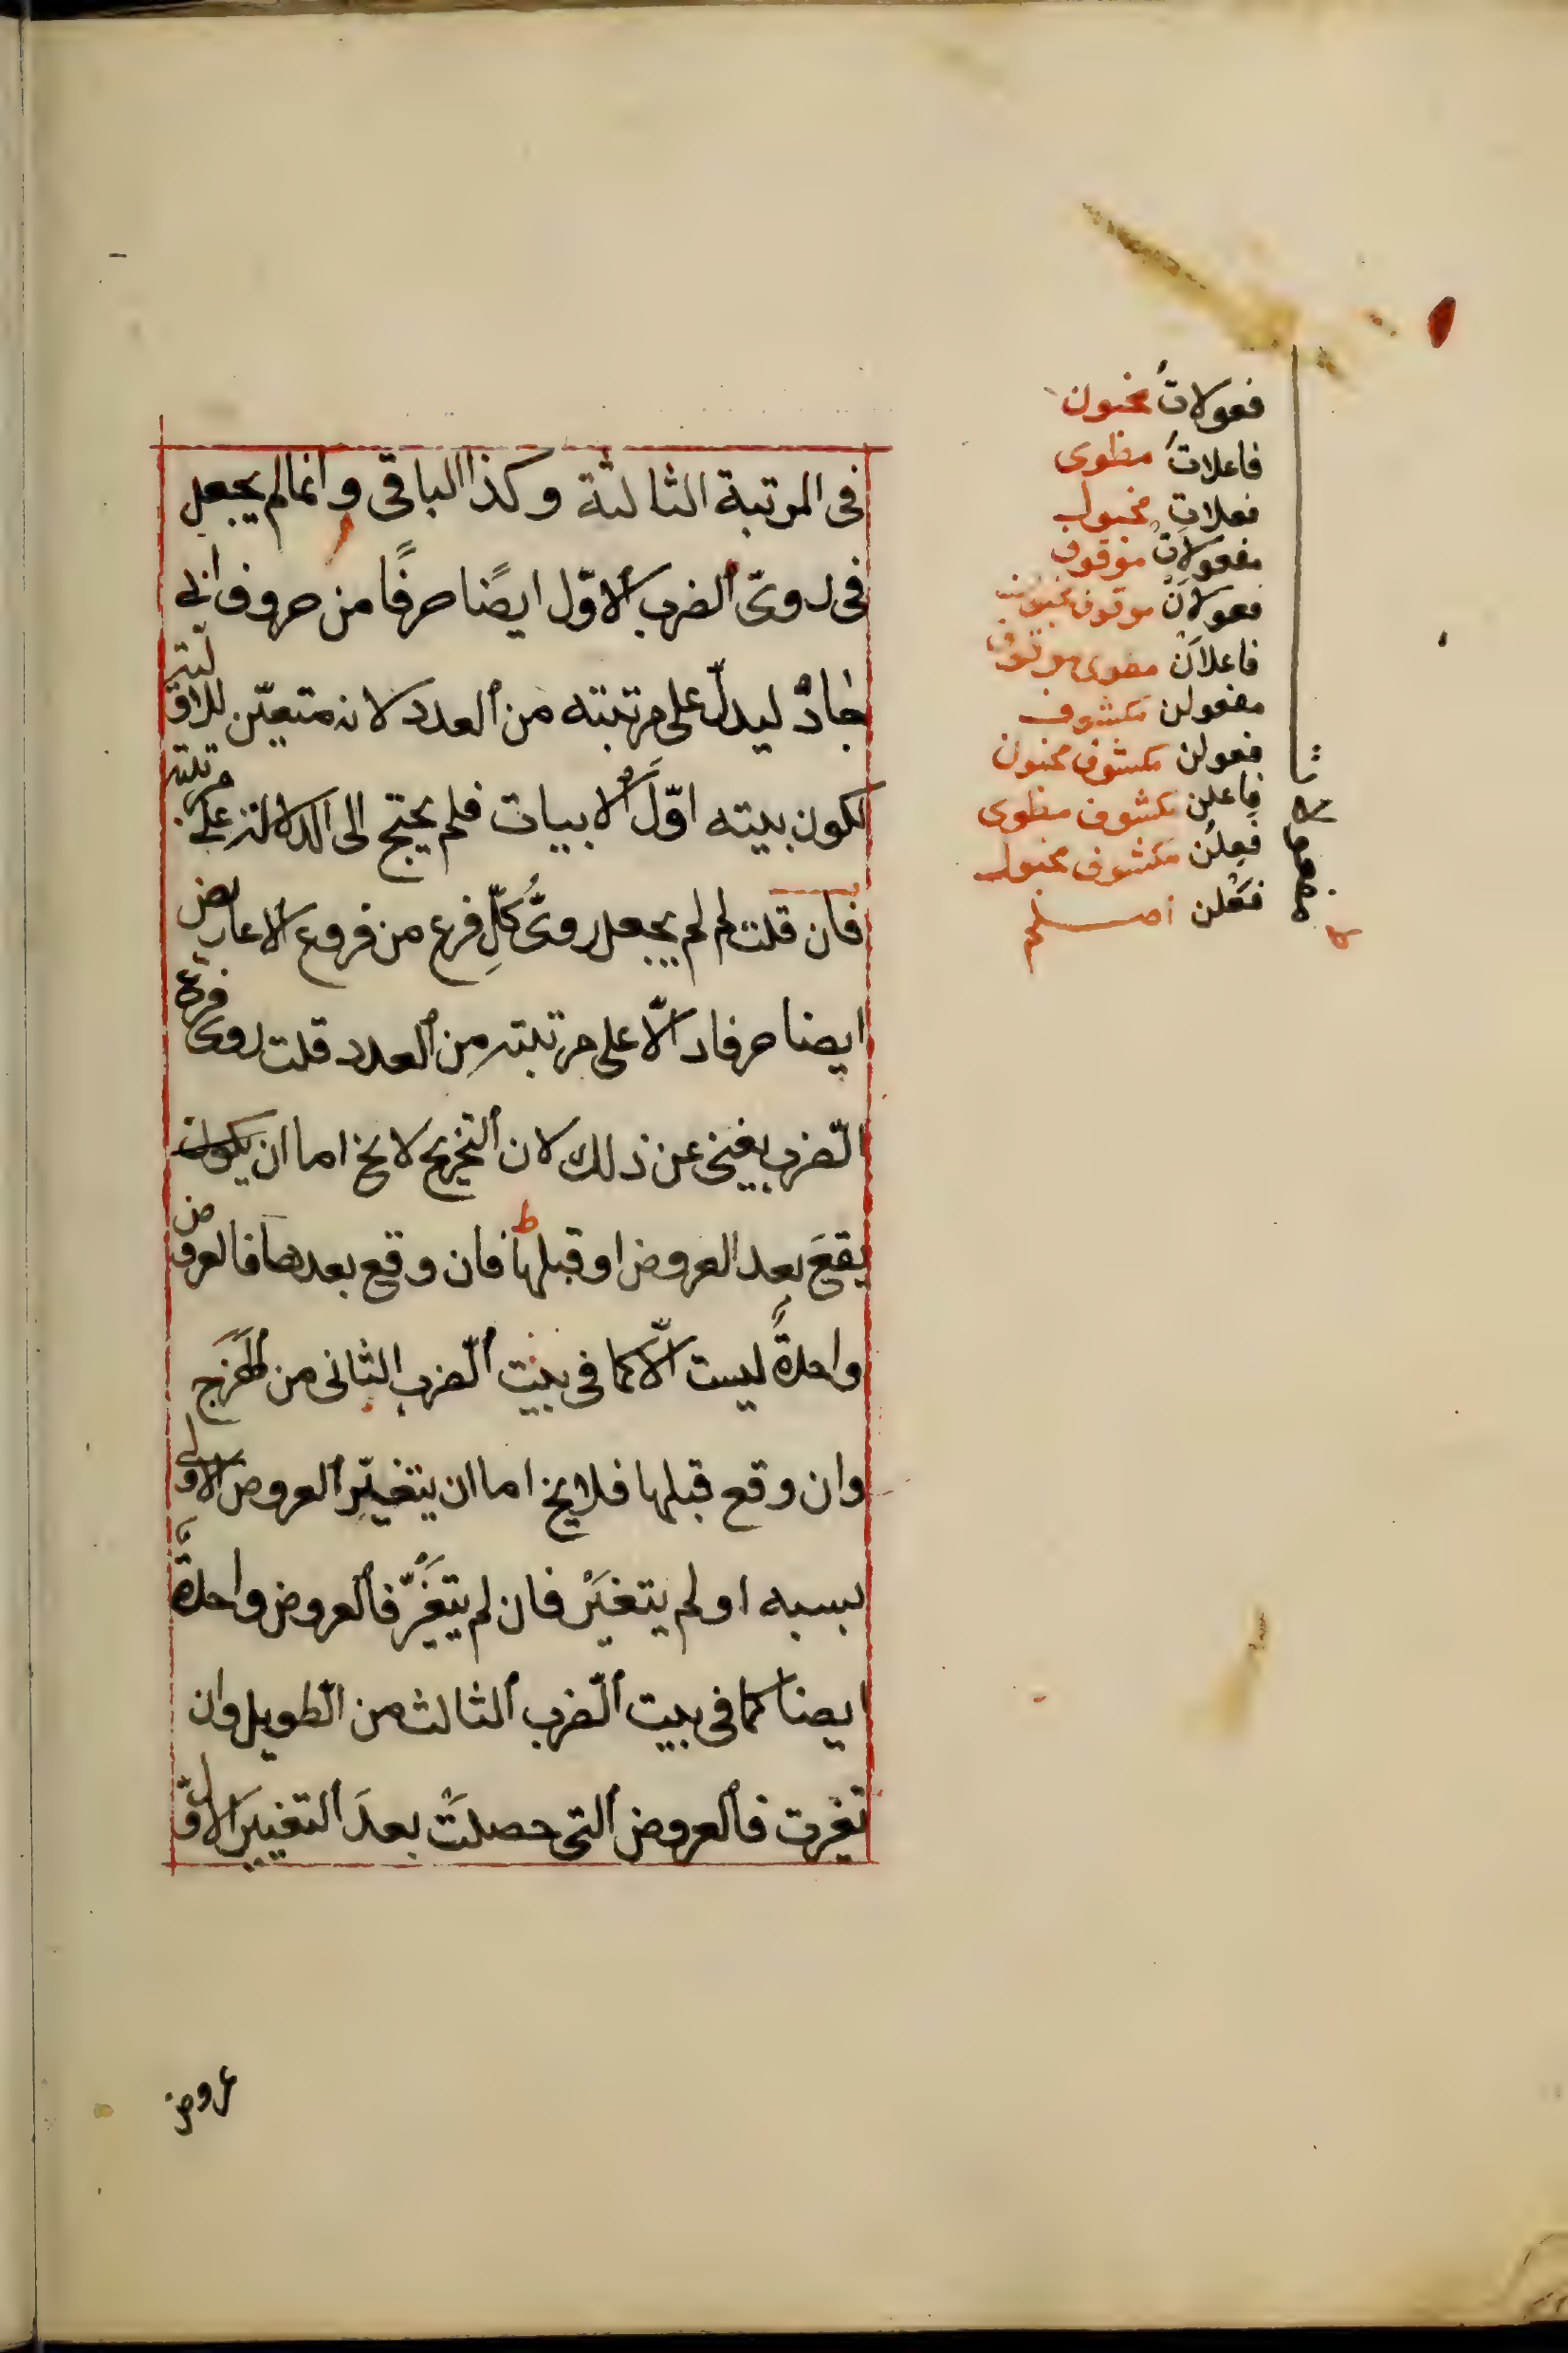 في المرتبة الثالثة وكذا الباقي وانما لم يجعل
في روىّ الضرب الاوّل ايضًا حرفًا من حروف ابي
جادٌ ليدلّ على مرتبته من العدد لانه متعيّن للاوّليّة
لكون بيته اوّلَ الابيات فلم يحتج الى الدلالة على مرتبته
فان قلت لم لم يجعل روىُّ كلِّ فرع من فروع الاعاريض
ايضا حرفا دالّا على مرتبته من العدد قلت روى فرع
الضرب يغنى عن ذلك لان التخريج لا يخ اما ان يكون
يقعَ بعد العروض او قبلها فان وقع بعدها فالعروض
واحدةً ليست الّا كما في بيت الضرب الثانى من الهَزَج
وان وقع قبلها فلا يخ اما ان يتغيّر العروض الاولى
بسببه او لم يتغيَّر فان لم يتغيَّر فالعروض واحدةً
ايضا كما في بيت الضرب الثالث من الطويل وان
تغيرت فالعروض التى حصلَتْ بعدَ التغييرَ الاوّل
عروض
مفعولات
فعولاتُ مخبون
فاعلاتُ مطوى
فعلاتُ مخبول
مفعولانْ موقوف
فعولانْ موقوف مخبون
فاعلانْ مطوى موقوف
مفعولن مكشوف
فعولن مكشوف مخبون
فاعلن مكشوف مطوى
فَعِلُن مكشوف مخبول
فَعْلن اصلم